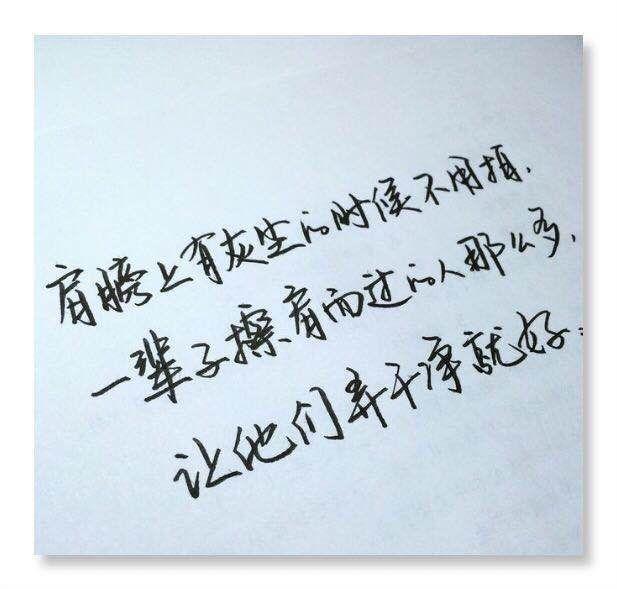 肩膀上有灰尘的时候不用掸，
一辈子擦肩而过的人那么多，
让他们弄干净就好。